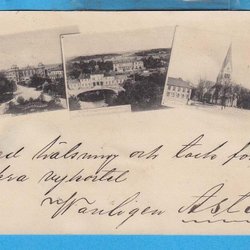 ed hälsning och tack fö
kra vykortet
Vänligen Aste